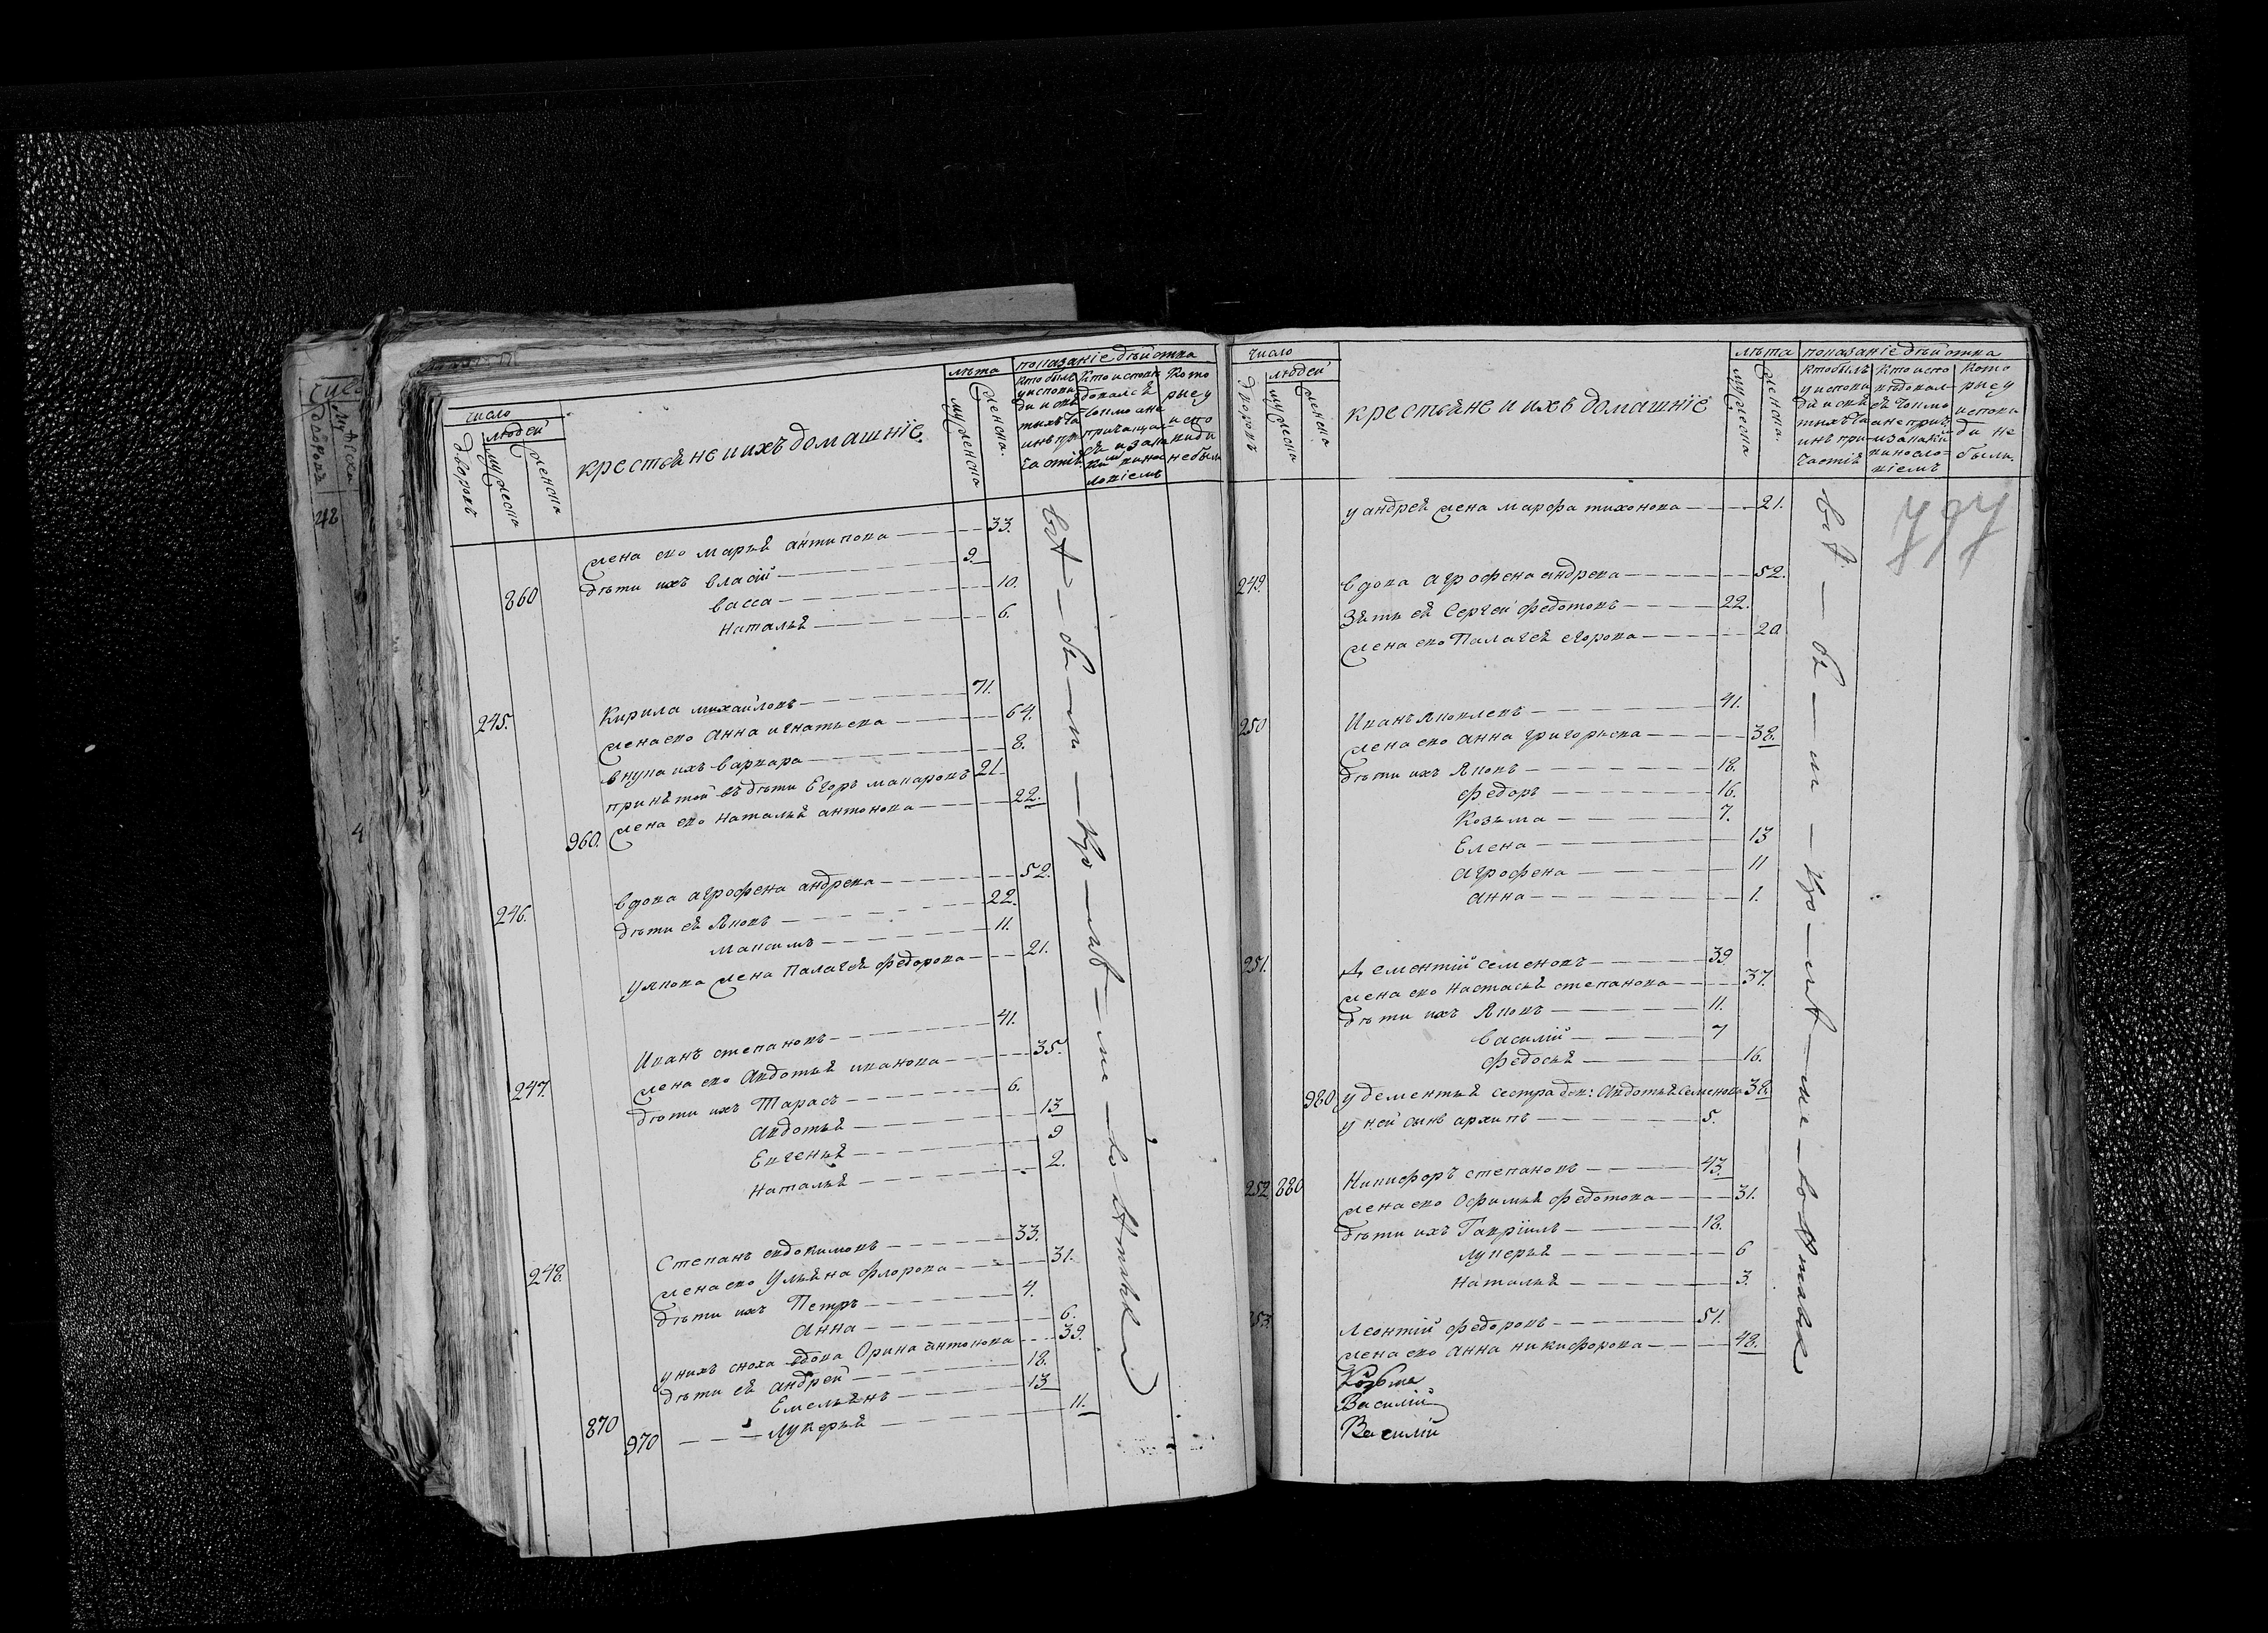 число
людей
дворовъ
мужеска
женска
крестьяне и ихъ домашніе
лѣта
мужеска
женска.
показаніе дѣйства
кто былъ у исповѣди и святыхъ таинъ причастіѣ
кто исповѣдовался токмо а не причащался и за какимъ виносло­віемъ
которые у исповѣди не были
жена ево марья антипова — 33.
860 дѣти ихъ власій — 9.
васса — 10.
наталья — 6.
245. Кирила михайловъ — 71.
жена ево анна игнатьева — 64.
внука ихъ варвара — 8.
принятой въ дѣти Егоръ макаровъ 21.
960. жена ево наталья антонова — 22.
246. вдова агрофена андрева — 52.
дѣти ея Яковъ — 22.
максимъ — 11.
у якова жена палагея федорова — 21.
247. Иванъ степановъ — 41.
жена ево авдотья иванова — 35.
дѣти ихъ Тарасъ — 6.
авдотья — 13
Евгенья — 9
наталья — 2.
248. Степанъ евдокимовъ — 33.
жена ево Ульяна флорова — 31.
дѣти ихъ Петръ — 4.
анна — 6.
у нихъ сноха вдова Орина антонова — 39.
дѣти ея андрей — 18.
870 Емельянъ — 13
970 — лукерья — 11.
число
людей
дворовъ
мужеска
женска
крестьяне и ихъ домашніе
лѣта
мужеска
женска.
показаніе дѣйства
кто былъ у исповѣди и святыхъ таинъ причастія
кто исповѣдовался токмо а не прича­ и за какимъ винословіемъ
которые у исповѣди не были.
у андрея жена марфа тихонова — 21.
249. вдова агрофена андрева — 52.
Зять ея Сергей федотовъ — 22.
жена ево Палагея егорова — 20
250 Иванъ Яковлевъ — 41.
жена ево анна григорьева — 38.
дѣти ихъ Яковъ — 18.
федоръ — 16.
Козьма — 7.
Елена — 13
агрофена — 11
анна — 1.
251. Дементій семеновъ — 39
жена ево настасья степанова — 37.
дѣти ихъ Яковъ — 11.
василій — 7
федосья — 16.
980 у дементья сестра вдов: авдотья семенова 38.
у ней сынъ архипъ — 5.
252 880 Никифоръ степановъ — 43.
жена ево Офимья федотова — 31.
дѣти ихъ Гавріилъ — 18.
лукерья — 6
наталья — 3.
253. Леонтій федоровъ — 51.
жена ево анна никифорова — 48.
Козьма
Василій
Василій